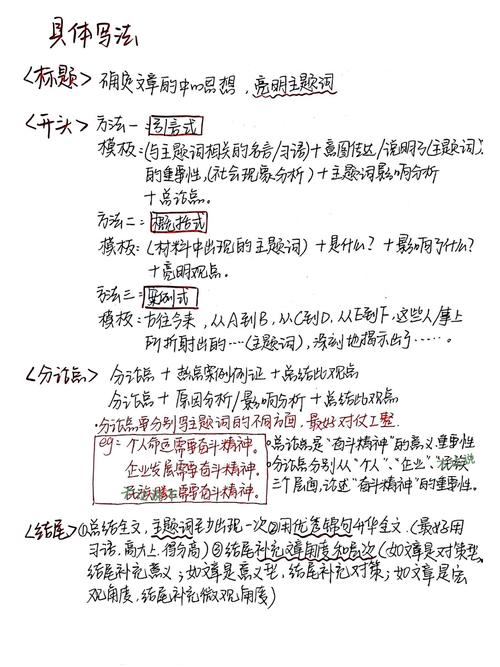 具体写法
<标题> 确定文章的中心思想，亮明主题词
<开头> 方法一：引言式
模板：(与主题词相关的名言/习语)＋意图传达/说明了(主题词)
的重要性，(社会现象分析)＋主题词影响分析
＋总论点。
方法二：概括式
模板：(材料中出现的主题词)＋是什么？＋影响了什么？
＋亮明观点。
方法三：案例式
模板：古往今来，从A到B，从C到D，从E到F，这些人/事上
所折射出的……(主题词)，深刻地揭示出了……。
<分论点> 分论点＋热点案例例证＋总结此观点
分论点＋原因分析/影响分析＋总结此观点
·分论点要分别写主题词的不同方面，最好对仗工整.
eg：个人命运需要奋斗精神。
企业发展需要奋斗精神。
民族腾飞需要奋斗精神。
·总论点是"奋斗精神"的意义重要性
·分论点分别从"个人"、"企业"、"民族
三个层面，论述"奋斗精神"的重要性。
<结尾> ①总结全文，主题词多次出现一次②用优秀锦句升华全文.(最好用
习语，高大上，得分高)③结尾补充文章角度和层次(如文章是对策型，
结尾补充意义；如文章是意义型，结尾补充对策；如文章是宏
观角度，结尾补充微观角度)